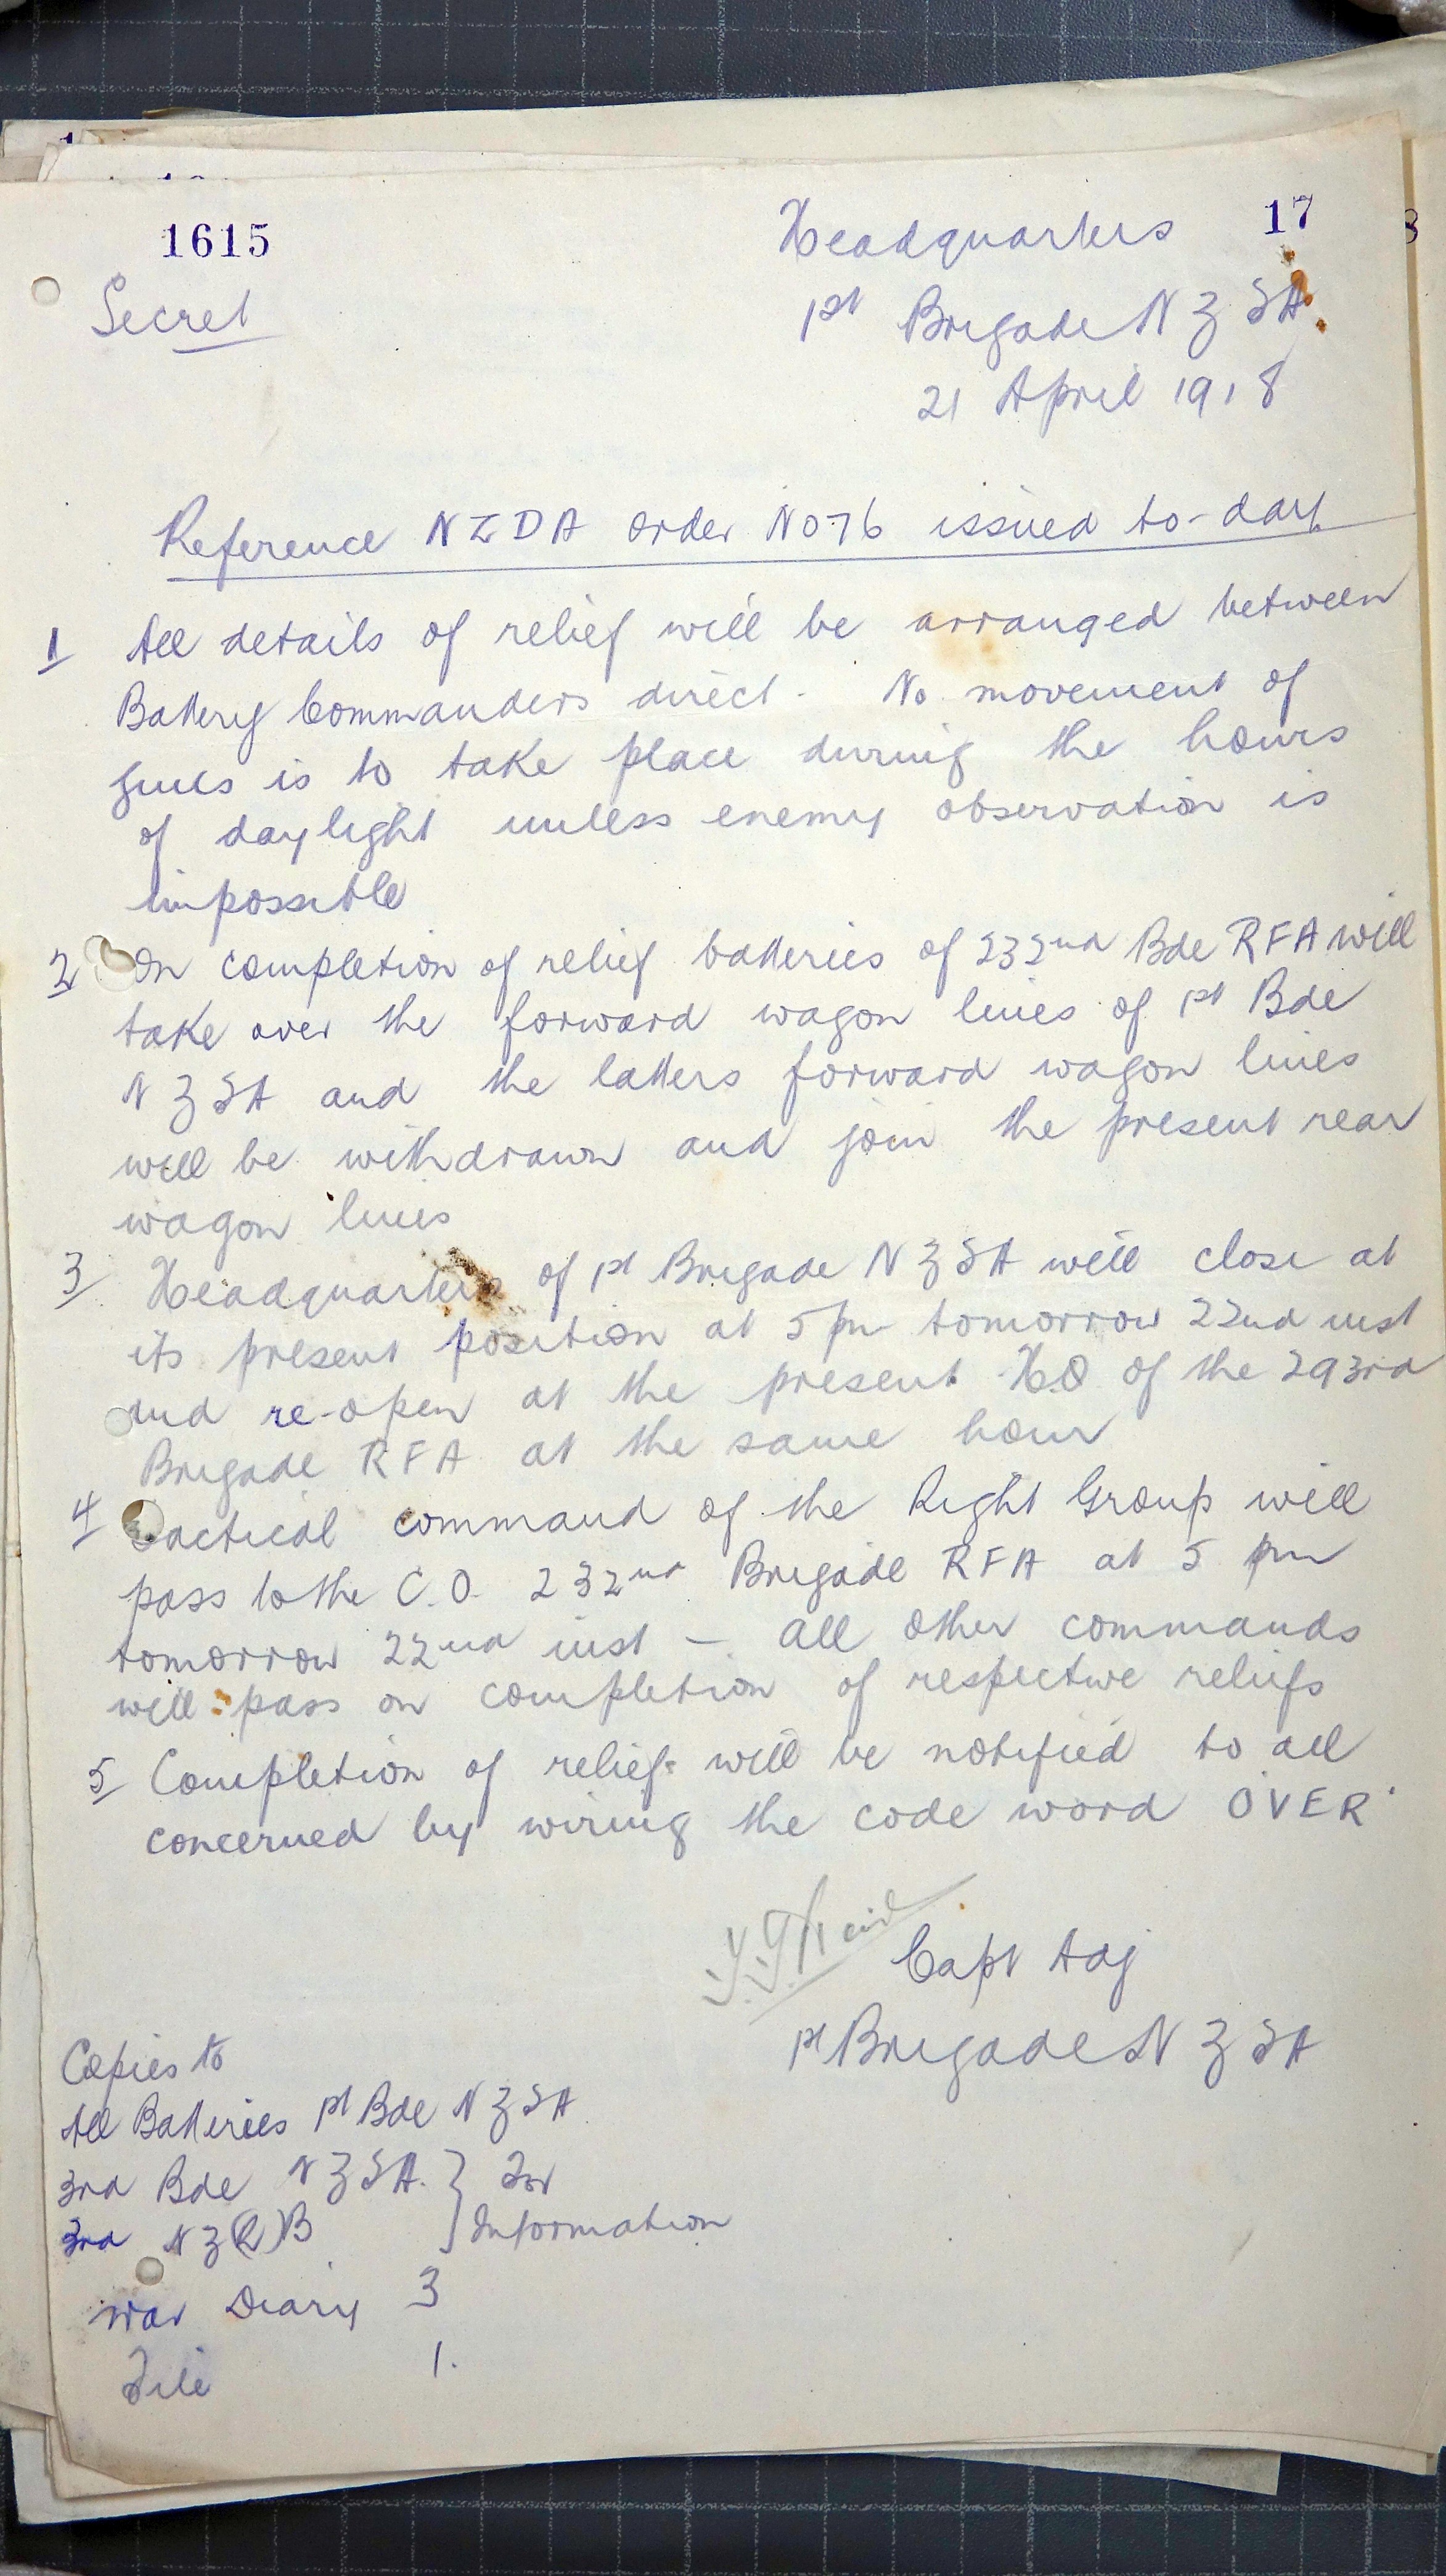 1615
17
Headquarters
Secret
1st Brigade NZFA
21 April 1918
Reference NZDA order No 76 issued to-day
1 All details of relief will be arranged between
Battery Commanders direct. No movement of
guns is to take place during the hours
of daylight unless enemy observation is
impossible
2 On completion of relief batteries of 232nd Bde RFA will
take over the forward wagon lines of 1st Bde
NZFA and the latters forward wagon lines
will be withdrawn and join the present rear
wagon lines
3 Headquarters of 1st Brigade NZFA will close at
its present position at 5 pm tomorrow 22nd inst
and re-open at the present HQ of the 293rd
Brigade RFA at the same hour
4 Tactical command of the Right Group will
pass to the C.O. 232nd Brigade RFA at 5 pm
tomorrow 22nd inst – All other commands
will pass on completion of respective reliefs
5 Completion of relief will be notified to all
concerned by wiring the code word 'OVER'
Capt Adj
1st Brigade NZFA
Copies to
All Batteries 1st Bde NZFA
3rd Bde NZFA } For
3rd NZ(R)B } Information
War Diary 3
File 1.